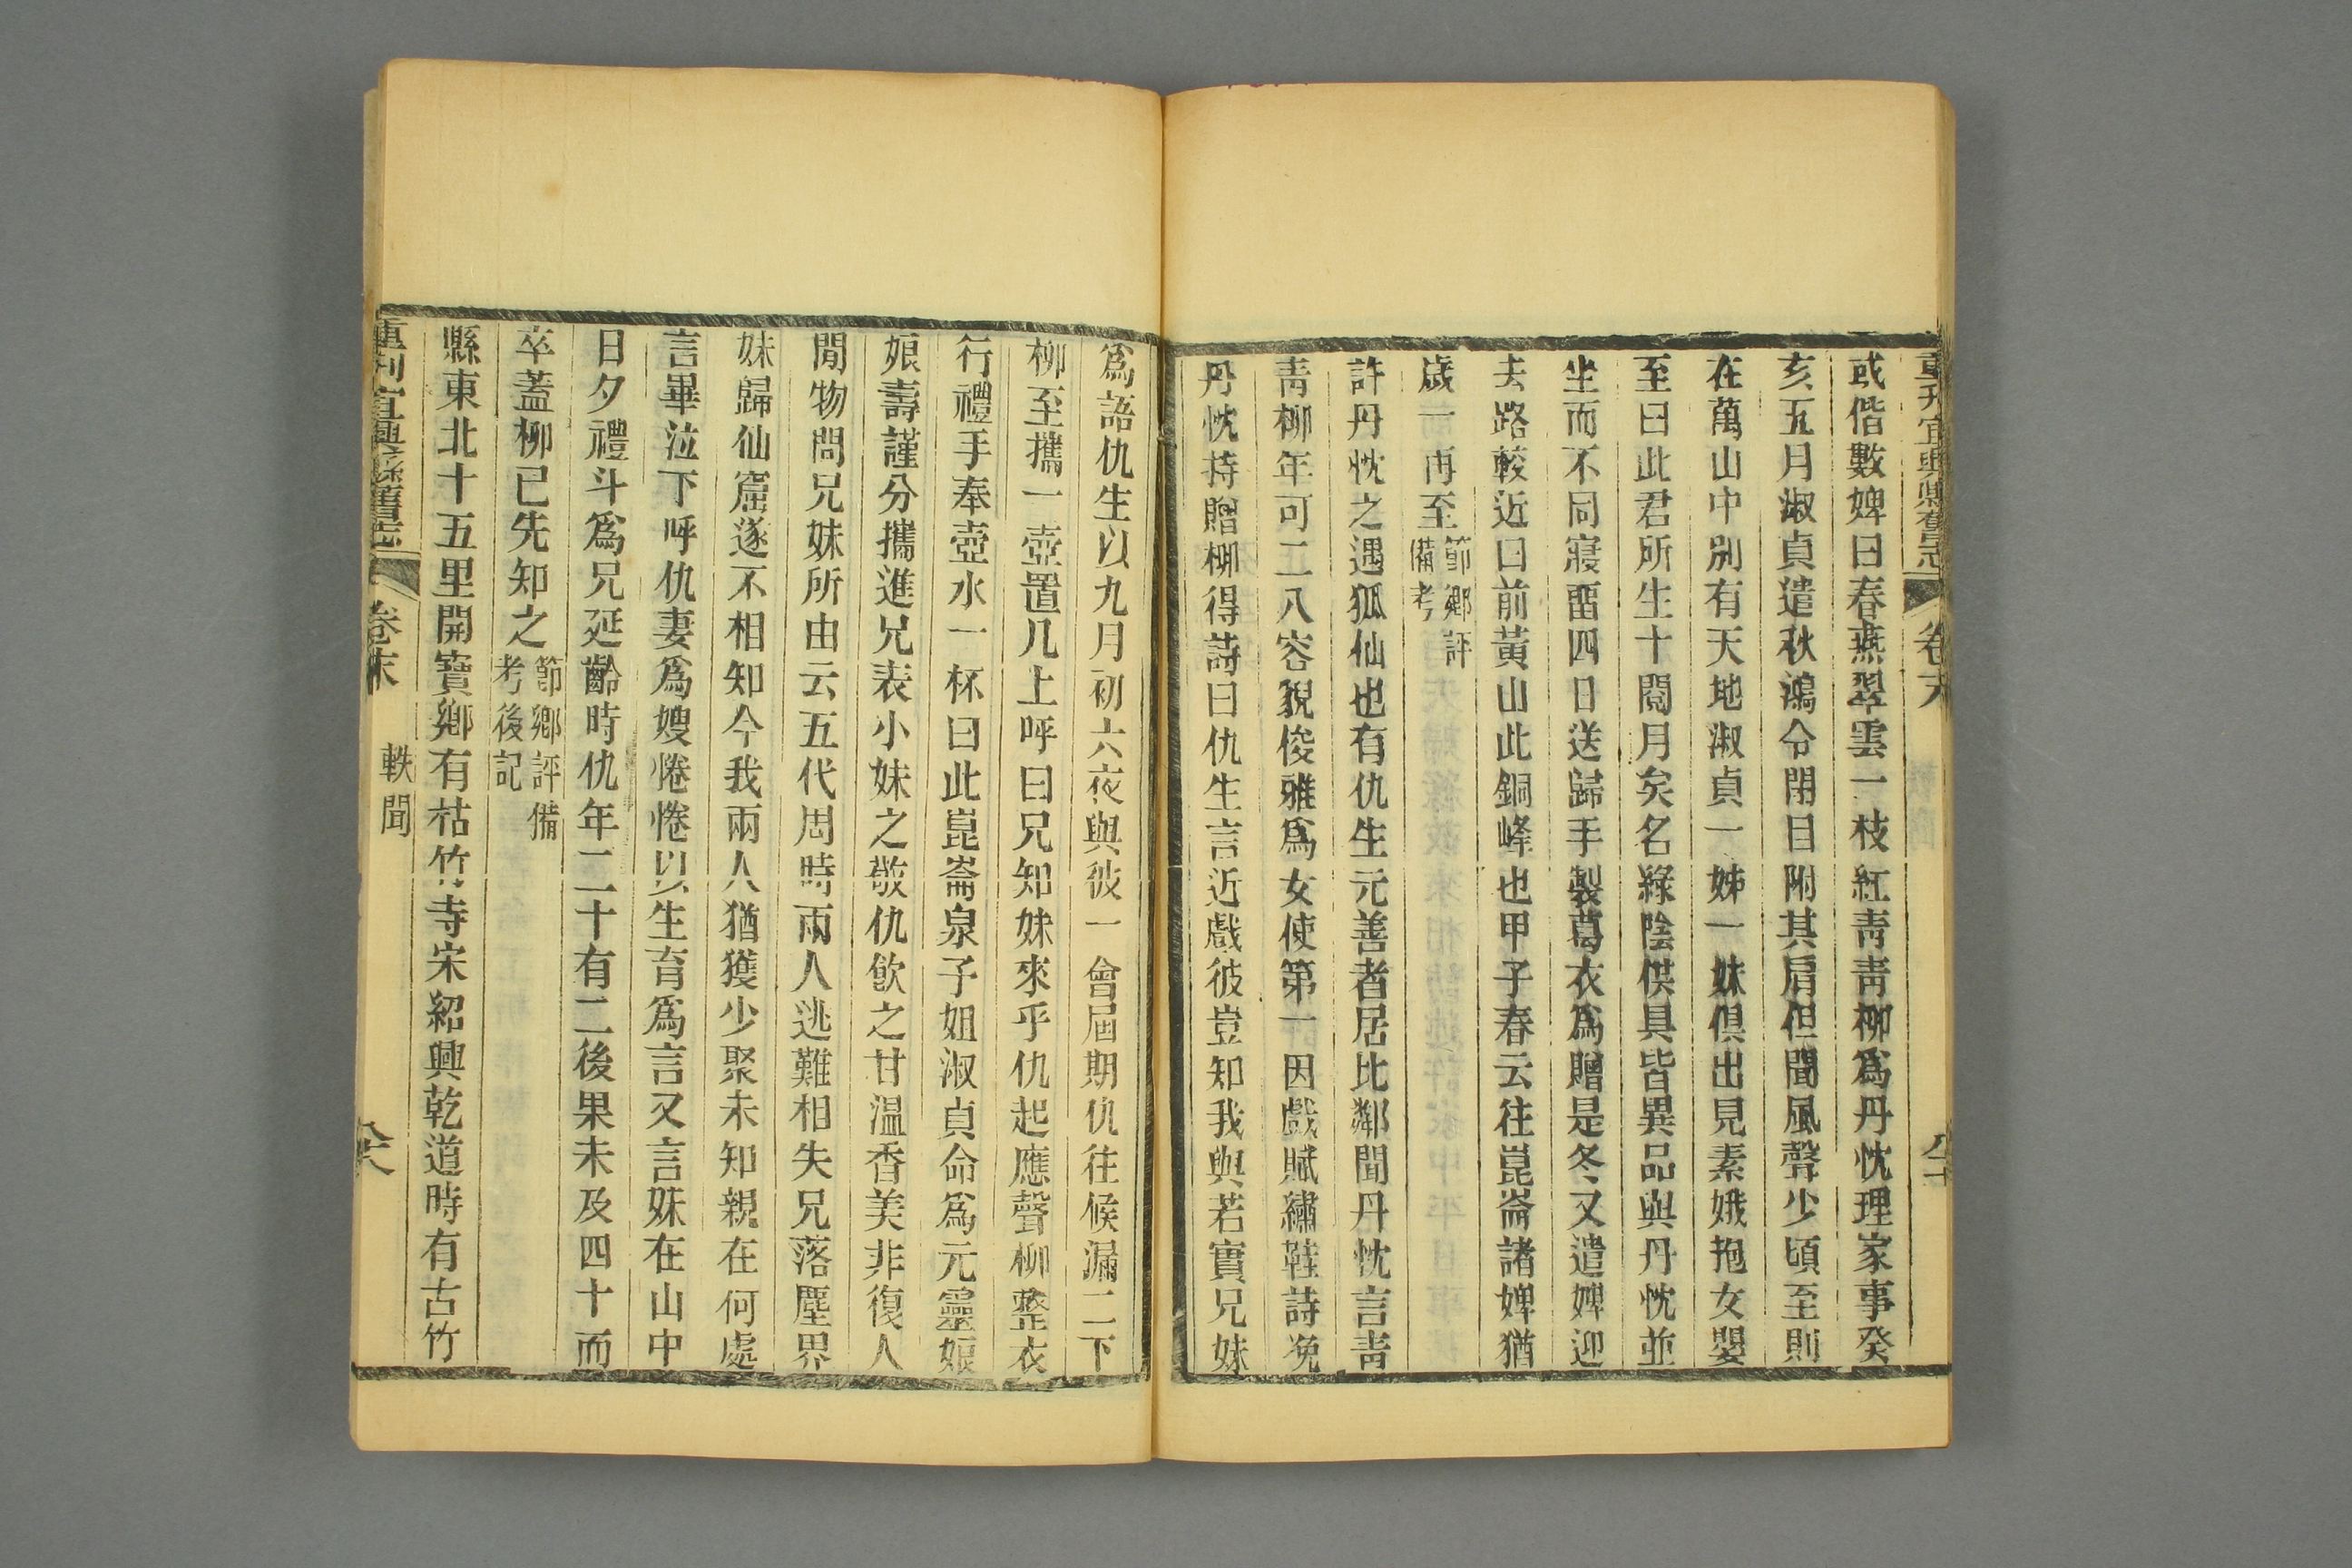 重刋宜興縣舊志 卷末
或偕數婢曰春燕翠雲一枝紅靑靑柳爲丹忱理家事癸
亥五月淑貞遣秋鴻令閉目附其肩但聞風聲少頃至則
在萬山中別有天地淑貞一姊一妹俱出見素娥抱女嬰
至曰此君所生十閱月矣名綠陰供具皆異品與丹忱並
坐而不同寢畱四日送歸手製葛衣爲贈是冬又遣婢迎
去路較近曰前黃山此銅峰也甲子春云往崑崙諸婢猶
歲一再至節鄕評備考
許丹忱之遇狐仙也有仇生元善者居比鄰聞丹忱言靑
靑柳年可二八容貌俊雅爲女使第一因戲賦繡鞋詩浼
丹忱持贈柳得詩曰仇生言近戲彼豈知我與若實兄妹
爲語仇生以九月初六夜與彼一會屆期仇往候漏二下
柳至攜一壺置几上呼曰兄知妹來乎仇起應聲柳整衣
行禮手奉壺水一杯曰此崑崙泉子姐淑貞命爲元靈娘
娘壽謹分攜進兄表小妹之敬仇飮之甘溫香美非復人
閒物問兄妹所由云五代周時兩人逃難相失兄落塵界
妹歸仙窟遂不相知今我兩人猶獲少聚未知親在何處
言畢泣下呼仇妻爲嫂惓惓以生育爲言又言妹在山中
日夕禮斗爲兄延齡時仇年二十有二後果未及四十而
卒蓋柳已先知之節鄕評備考後記
縣東北十五里開寶鄕有枯竹寺宋紹興乾道時有古竹
重刋宜興縣舊志 卷末 軼聞